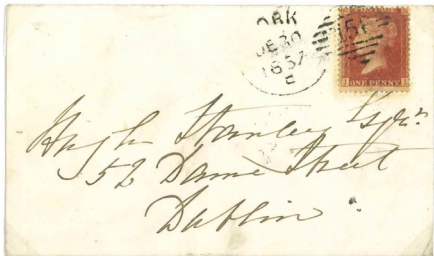 ORK
DE 30
1857
E
156
ONE PENNY
Hugh Stanley Esqre
52 Dame Street
Dublin